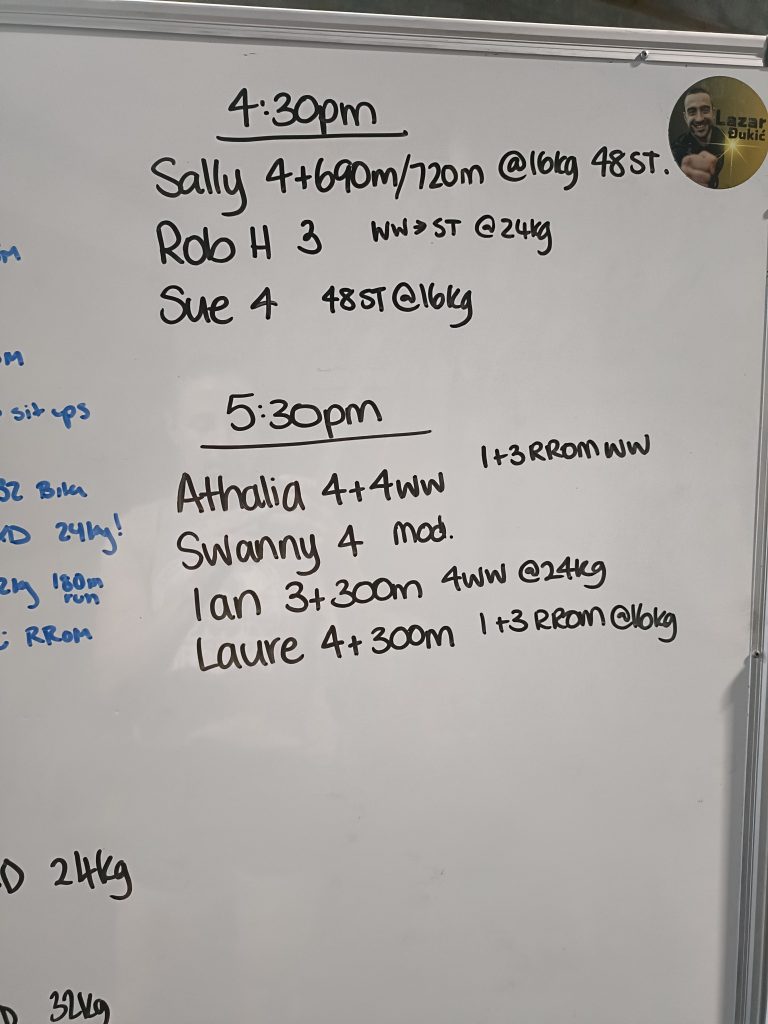 4:30pm
Sally 4+690m/720m @16kg 48 ST.
Rob H 3 WW→ST @24kg
Sue 4 48 ST @16kg
5:30pm
Athalia 4+4WW 1+3 RROM WW
Swanny 4 mod.
Ian 3+300m 4WW @24kg
Laure 4+300m 1+3 RROM @16kg
Lazar
Đukić
sit ups
Bike
24kg!
180m
run
RROM
24kg
32kg